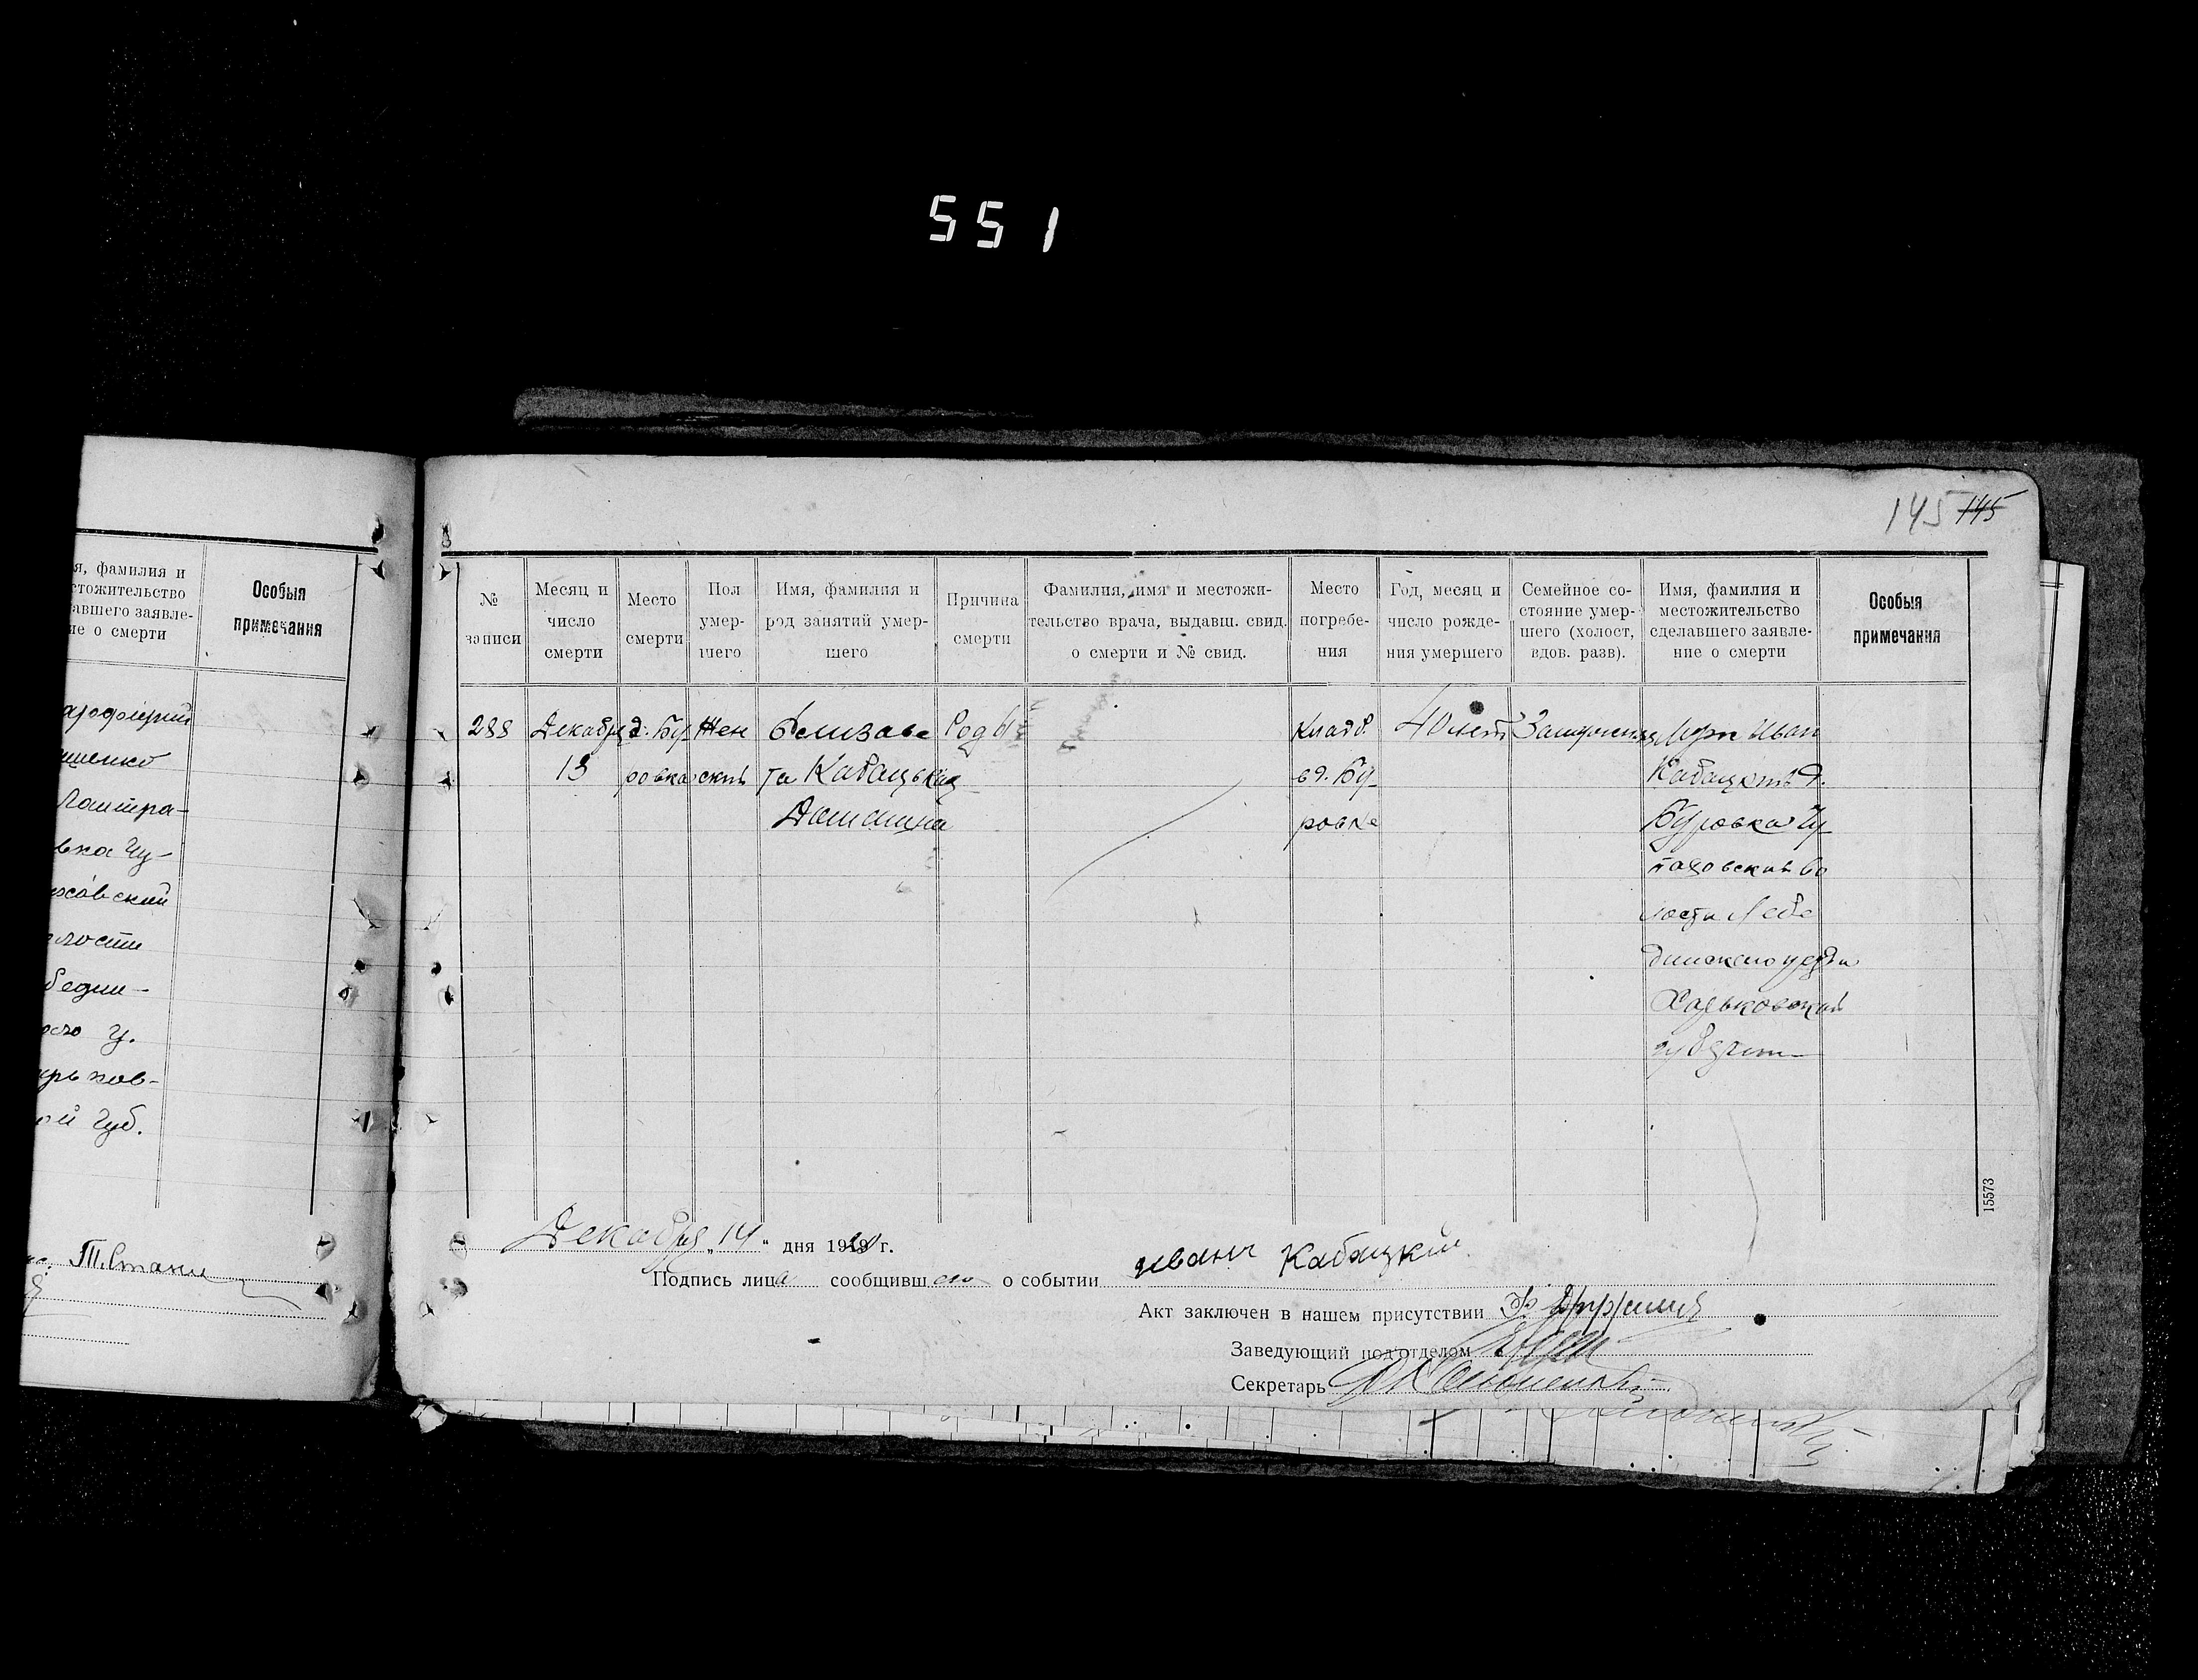 551
145 145
я, фамилия и
стожительство
авшего заявле-
ие о смерти
Особыя
примечания
щенко
вка Чу-
ховский
лости
бедин-
ого у.
арьков-
ой Губ.
№
записи
Месяц и
число
смерти
Место
смерти
Пол
умер-
шего
Имя, фамилия и
род занятий умер-
шего
Причина
смерти
Фамилия, имя и местожи-
тельство врача, выдавш. свид.
о смерти и № свид.
Место
погребе-
ния
Год, месяц и
число рожде-
ния умершего
Семейное со-
стояние умер-
шего (холост,
вдов. разв).
Имя, фамилия и
местожительство
сделавшего заявле-
ние о смерти
Особыя
примечания
288
Декабря
13
д. Бу
ровка
Жен
скій
Елизаве
та Кабацькая
Роды
Кладб.
в д. Бу-
ровке
40 лет
Замужняя
Муж Иван
Кабацкій д.
Буровка Чу
паховскій во
лости Лебе
динского уезда
Харьковской
губернии
15573
Декабря „14“ дня 1920 г.
Подпись лица сообщившего о событии Иванъ Кабацкій
Акт заключен в нашем присутствии
Заведующий под'отделом
Секретарь